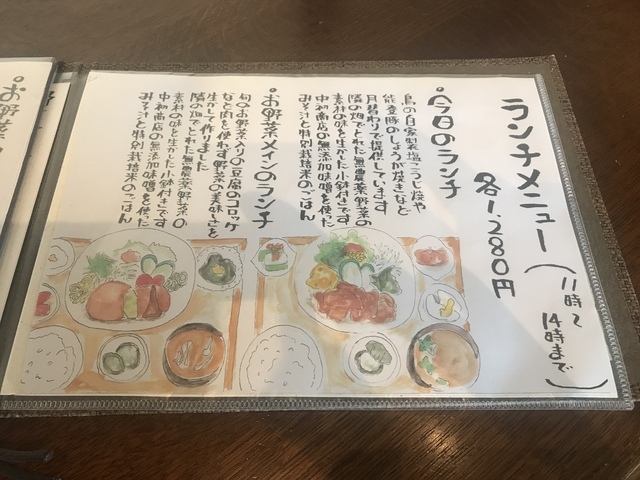 ランチメニュー
(11時〜
14時まで)
各1,280円
今日のランチ
鳥の自家製塩こうじ焼や
能登豚のしょうが焼きなど
月替わりで提供しています
隣の畑でとれた無農薬野菜の
素材の味を生かした小鉢付きです
中初商店の無添加味噌を使った
みそ汁と特別栽培米のごはん
お野菜メインのランチ
旬のお野菜入りの豆腐のコロッケ
など肉を使わず野菜の美味さを
生かして作りました
隣の畑でとれた無農薬野菜の
素材の味を生かした小鉢付きです
中初商店の無添加味噌を使った
みそ汁と特別栽培米のごはん
お野菜